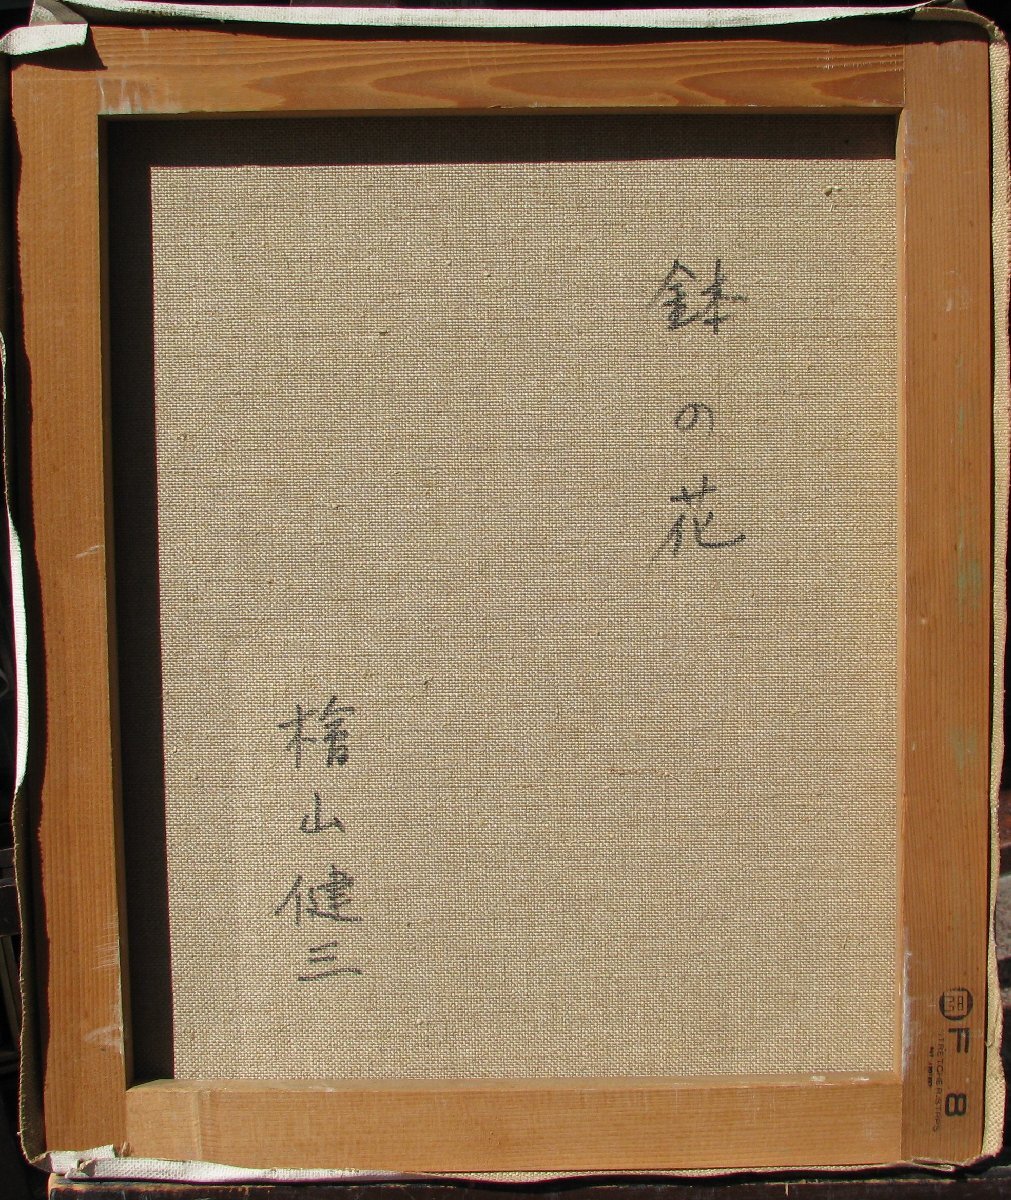 鉢の花
檜山健三
F 8